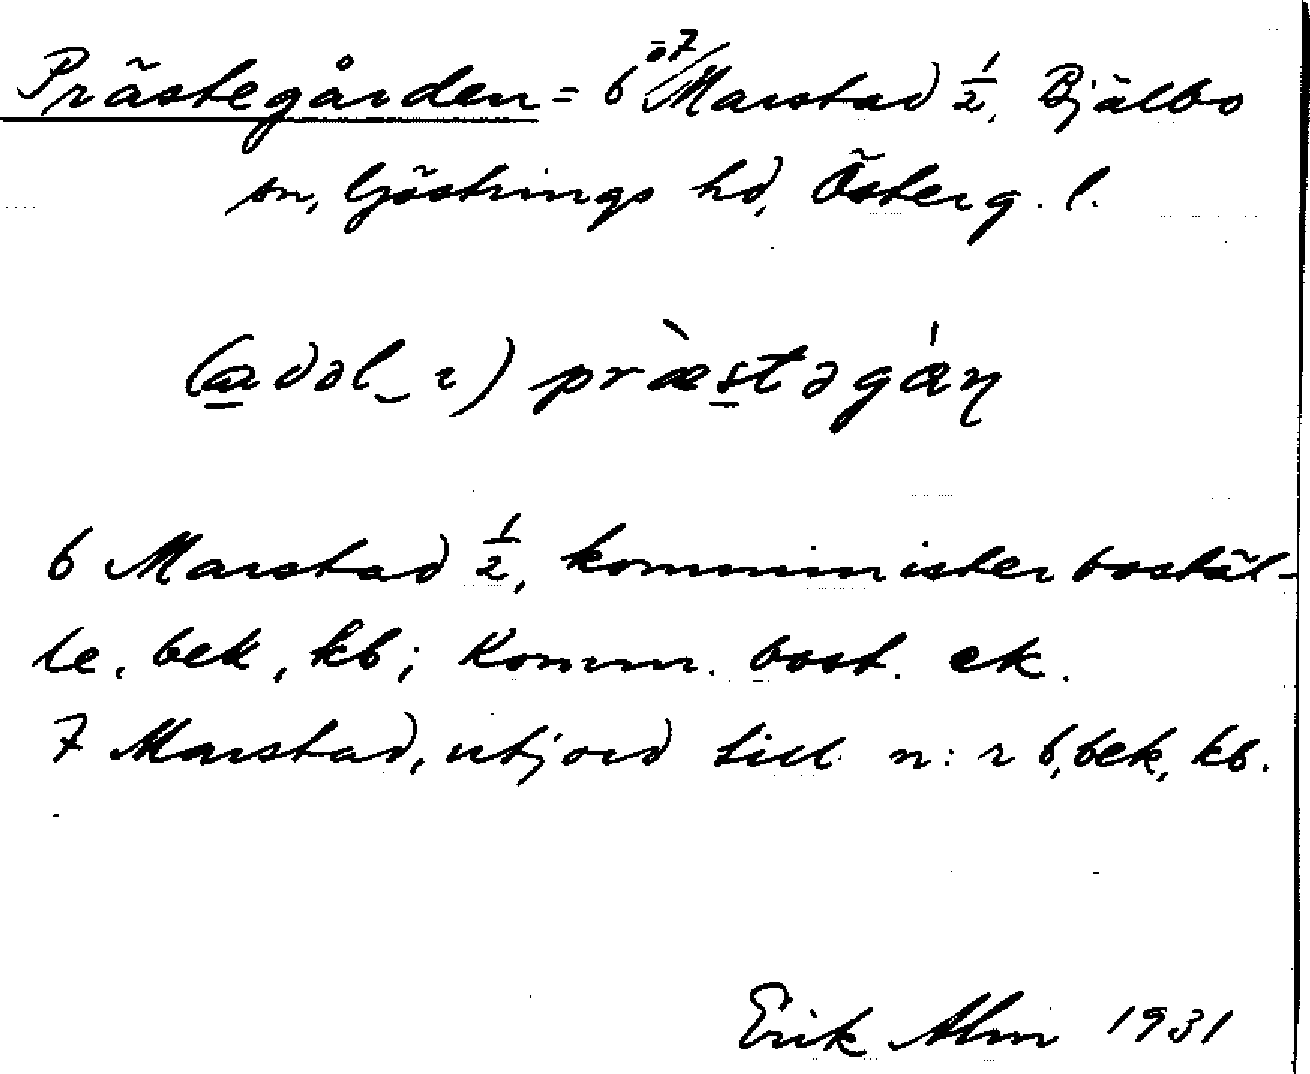 Prästegården = 6 o 7/ Marstad 1/2, Bjälbo
sn, Göstrings hd, Österg. l.
præstəgán
6 Marstad 1/2, komministerbostäl-
le, bek, kb; Komm. bost. ek.
7 Marstad, utjord till n:r 6, bek, kb.
Erik Alm 1931